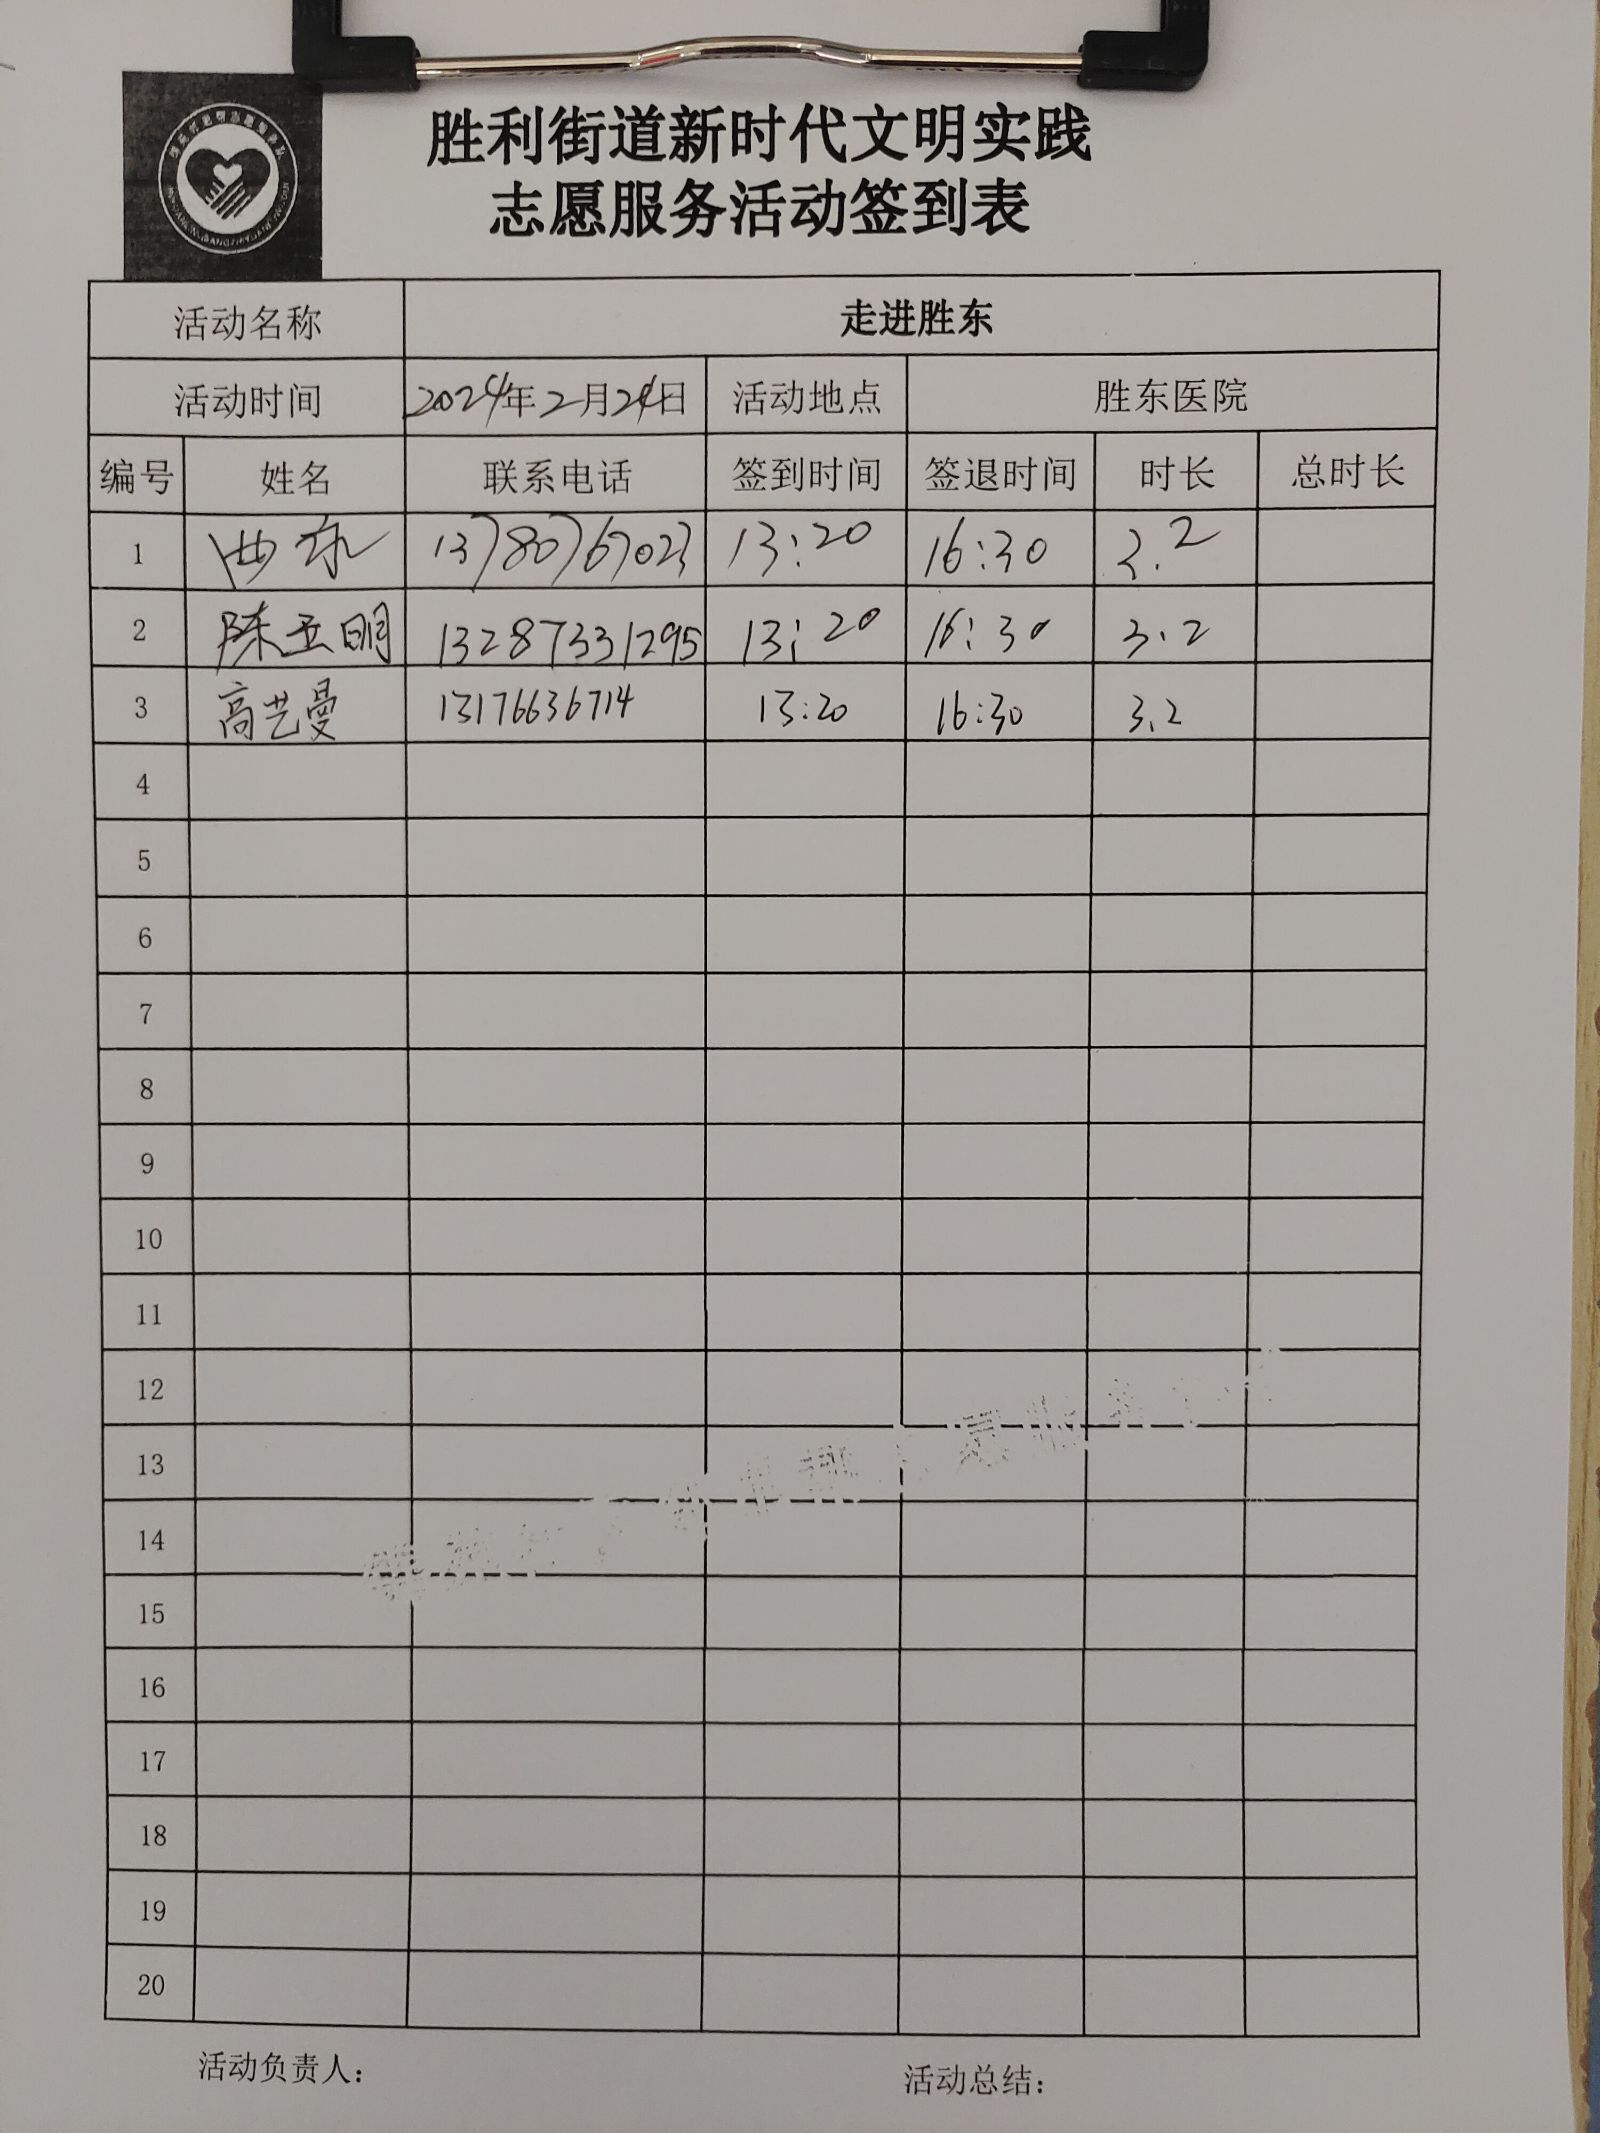 胜利街道新时代文明实践
志愿服务活动签到表
活动名称 走进胜东
活动时间 2024年2月24日 活动地点 胜东医院
编号 姓名 联系电话 签到时间 签退时间 时长 总时长
1 13780767023 13:20 16:30 3.2
2 陈玉明 13287331295 13:20 16:30 3.2
3 高艺曼 13176636714 13:20 16:30 3.2
4
5
6
7
8
9
10
11
12
13
14
15
16
17
18
19
20
活动负责人： 活动总结：